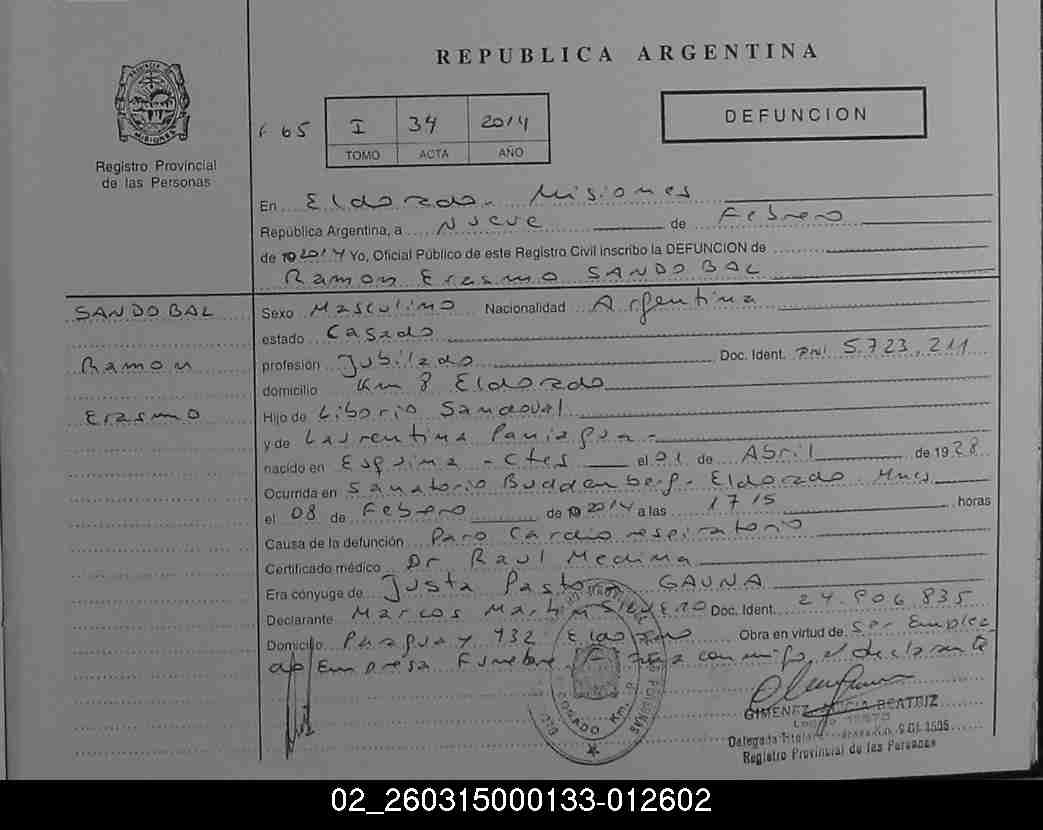 REPUBLICA ARGENTINA
PROVINCIA DE MISIONES
Registro Provincial
de las Personas
F 65
I 34 2014
TOMO ACTA AÑO
DEFUNCION
En Eldorado - Misiones
República Argentina, a Nueve de Febrero
de 19 2014 Yo, Oficial Público de este Registro Civil inscribo la DEFUNCION de
Ramon Erasmo SANDOBAL
SANDOBAL
Ramon
Erasmo
Sexo Masculino Nacionalidad Argentina
estado Casado
profesión Jubilado Doc. Ident. DNI 5.723.211
domicilio Km 8 Eldorado
Hijo de Liborio Sandoval
y de Laurentina Paniagua -
nacido en Esquina - Ctes el 01 de Abril de 1928
Ocurrida en Sanatorio Buddenberg - Eldorado Mnes
el 08 de Febrero de 19 2014 a las 17 15 horas
Causa de la defunción Paro Cardio respiratorio
Certificado médico Dr Raul Medina
Era cónyuge de Justa Pastora GAUNA
Declarante Marcos Martin Doc. Ident. 24.906.835
Domicilio Paraguay 932 Eldorado Obra en virtud de Ser Emplea
do Empresa Funebre Firma conmigo el declarante
GIMENEZ ALICIA BEATRIZ
Delegada Titular
Registro Provincial de las Personas
02_260315000133-012602